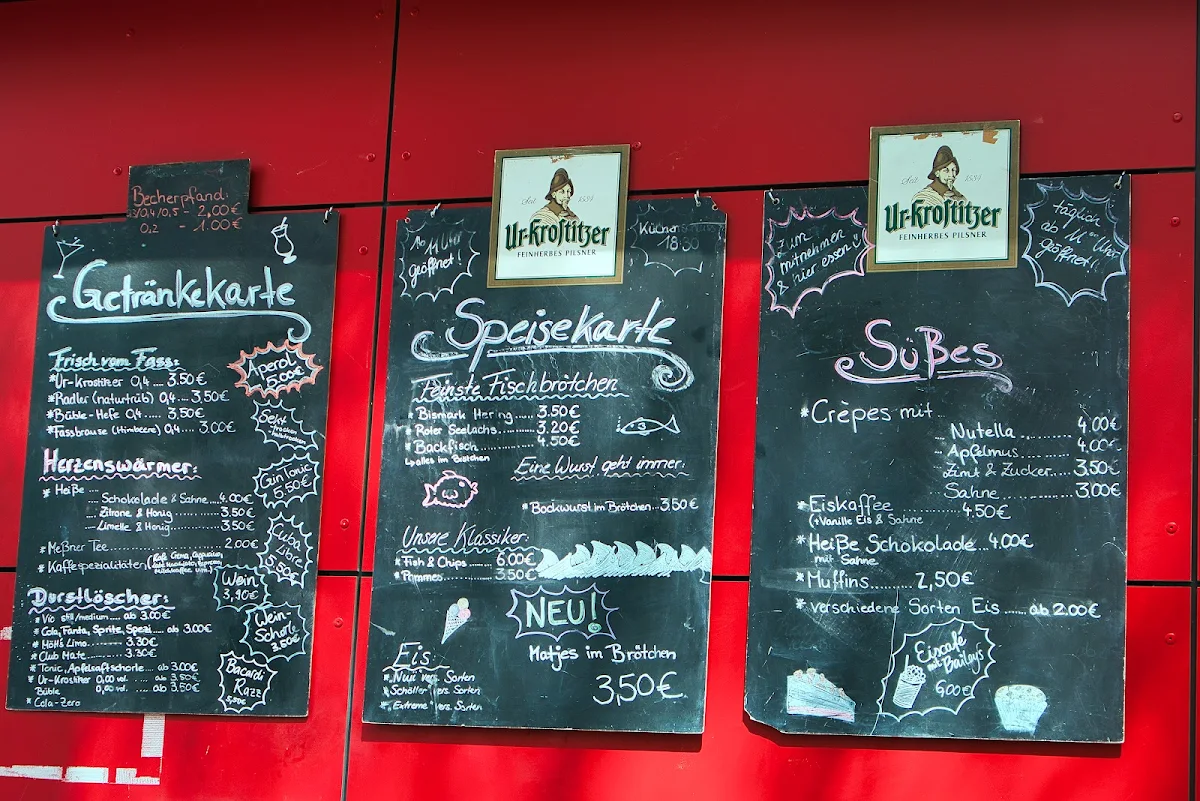 Becherpfand
0,4/0,5 - 2,00€
0,2 - 1.00€
Getränkekarte
Frisch vom Fass:
*Ur-Krostitzer 0,4 .... 3.50€
*Radler (naturtrüb) 0,4 .... 3,50€
*Büble-Hefe 0,4 .... 3,50€
*Fassbrause (Himbeere) 0,4 ... 3.00€
Aperol
5,00€
Sekt
trocken
halbtrocken
Herzenswärmer:
* Heiße ...
Schokolade & Sahne....4.00€
... Zitrone & Honig .......... 3.50€
... Limelle & Honig .......... 3,50€
* Meßner Tee .......... 2.00€
* Kaffespezialitäten
Gin Tonic
5.50€
Cuba
Libre
5.50€
Wein
3,90€
Wein-
Schorle
3.50€
Bacardi
Razz
5,50€
Durstlöscher:
* Vio still/medium.... ab 3.00€
* Cola, Fanta, Sprite, Spezi .... ab 3.00€
* Höll's Limo ........ 3.30€
* Club Mate ........ 3.30€
* Tonic, Apfelsaftschorle.... ab 3.00€
* Ur-Krostitzer 0,00 vol. .... ab 3.50€
Büble 0,00 vol. .... ab 3.50€
* Cola-Zero
Ab 11 Uhr
geöffnet!
Seit 1534
Ur-Krostitzer
FEINHERBES PILSNER
Küche
18:30
Speisekarte
Feinste Fischbrötchen
* Bismark Hering ..... 3.50€
* Roter Seelachs ...... 3.20€
* Backfisch ............ 4.50€
alles im Brötchen
Eine Wurst geht immer:
*Bockwurst im Brötchen..3.50€
Unsere Klassiker:
*Fish & Chips ..... 6.00€
*Pommes .......... 3.50€
NEU!
Matjes im Brötchen
3,50€
Eis
*Nuii vers. Sorten
*Schöller vers. Sorten
*"Extreme" vers. Sorten
Zum
mitnehmen
& hier essen
Seit 1534
Ur-Krostitzer
FEINHERBES PILSNER
täglich
ab 11°° Uhr
geöffnet!!
Süßes
*Crèpes mit ...
Nutella ............ 4.00€
Apfelmus.......... 4.00€
Zimt & Zucker.... 3,50€
Sahne............ 3.00€
*Eiskaffee ........ 4.50€
(+Vanille Eis & Sahne
*Heiße Schokolade...4.00€
mit Sahne
*Muffins........2,50€
*verschiedene Sorten Eis ..... ab 2.00€
Eiscafé
mit Bailey's
6,00€